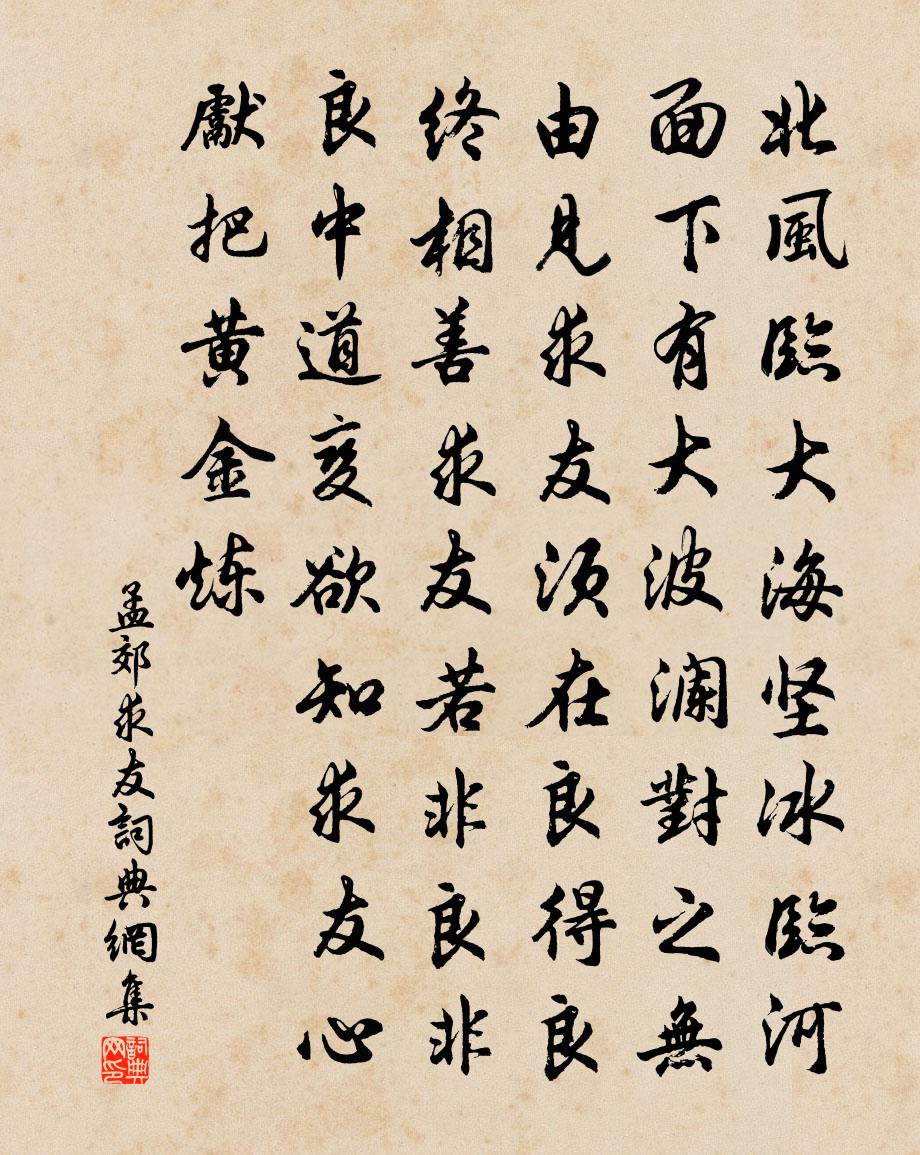 北風臨大海坚冰臨河
面下有大波瀾對之無
由見求友须在良得良
終相善求友若非良非
良中道变欲知求友心
獻把黄金炼
孟郊求友詞典網集
詞典网印